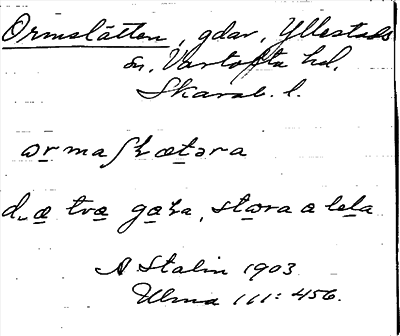 Ormslätten, gdar, Yllestads
sn, Vartofta hd,
Skarab. l.
ɷrmaʃkætəra
d_æ tvæ gaka, støra æ lela
A Stalin 1903
Ulma 111: 456.